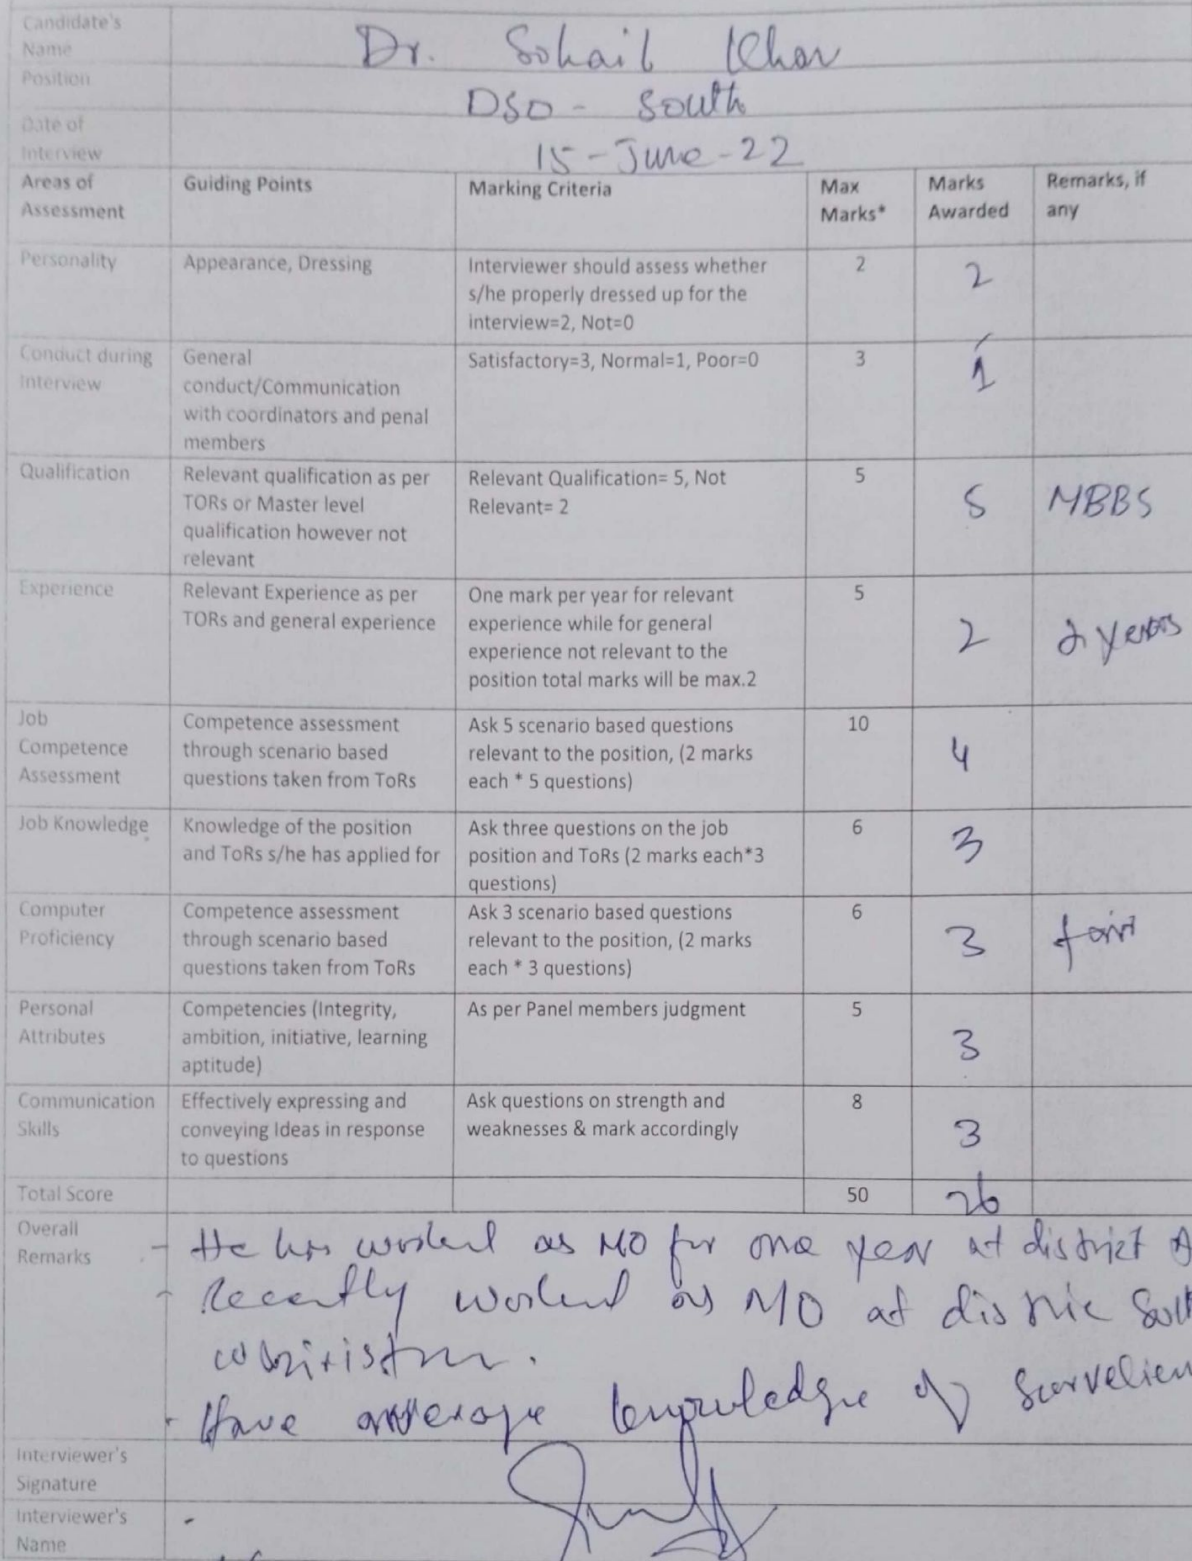 Candidate's
Name
Dr. Sohail Khan
Position
DSO - South
Date of
Interview
15-June-22
Areas of
Assessment
Guiding Points
Marking Criteria
Max
Marks*
Marks
Awarded
Remarks, if
any
Personality
Appearance, Dressing
Interviewer should assess whether
s/he properly dressed up for the
interview=2, Not=0
2
2
Conduct during
Interview
General
conduct/Communication
with coordinators and penal
members
Satisfactory=3, Normal=1, Poor=0
3
1
Qualification
Relevant qualification as per
TORs or Master level
qualification however not
relevant
Relevant Qualification= 5, Not
Relevant= 2
5
5
MBBS
Experience
Relevant Experience as per
TORs and general experience
One mark per year for relevant
experience while for general
experience not relevant to the
position total marks will be max.2
5
2
2 years
Job
Competence
Assessment
Competence assessment
through scenario based
questions taken from ToRs
Ask 5 scenario based questions
relevant to the position, (2 marks
each * 5 questions)
10
4
Job Knowledge
Knowledge of the position
and ToRs s/he has applied for
Ask three questions on the job
position and ToRs (2 marks each*3
questions)
6
3
Computer
Proficiency
Competence assessment
through scenario based
questions taken from ToRs
Ask 3 scenario based questions
relevant to the position, (2 marks
each * 3 questions)
6
3
fair
Personal
Attributes
Competencies (Integrity,
ambition, initiative, learning
aptitude)
As per Panel members judgment
5
3
Communication
Skills
Effectively expressing and
conveying Ideas in response
to questions
Ask questions on strength and
weaknesses & mark accordingly
8
3
Total Score
50
26
Overall
Remarks
- He has worked as MO for one year at district
- Recently worked as MO at distric
- Have average knowledge of
Interviewer's
Signature
Interviewer's
Name
-